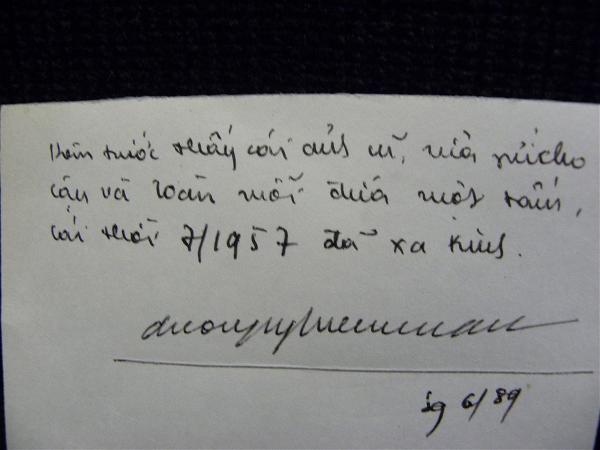 Hôm trước thấy cái ảnh cũ, gửi cho
cậu và Loan mỗi đứa một tấm,
cái thời 7/1957 đã xa
duongnghiemmau
sg 6/89